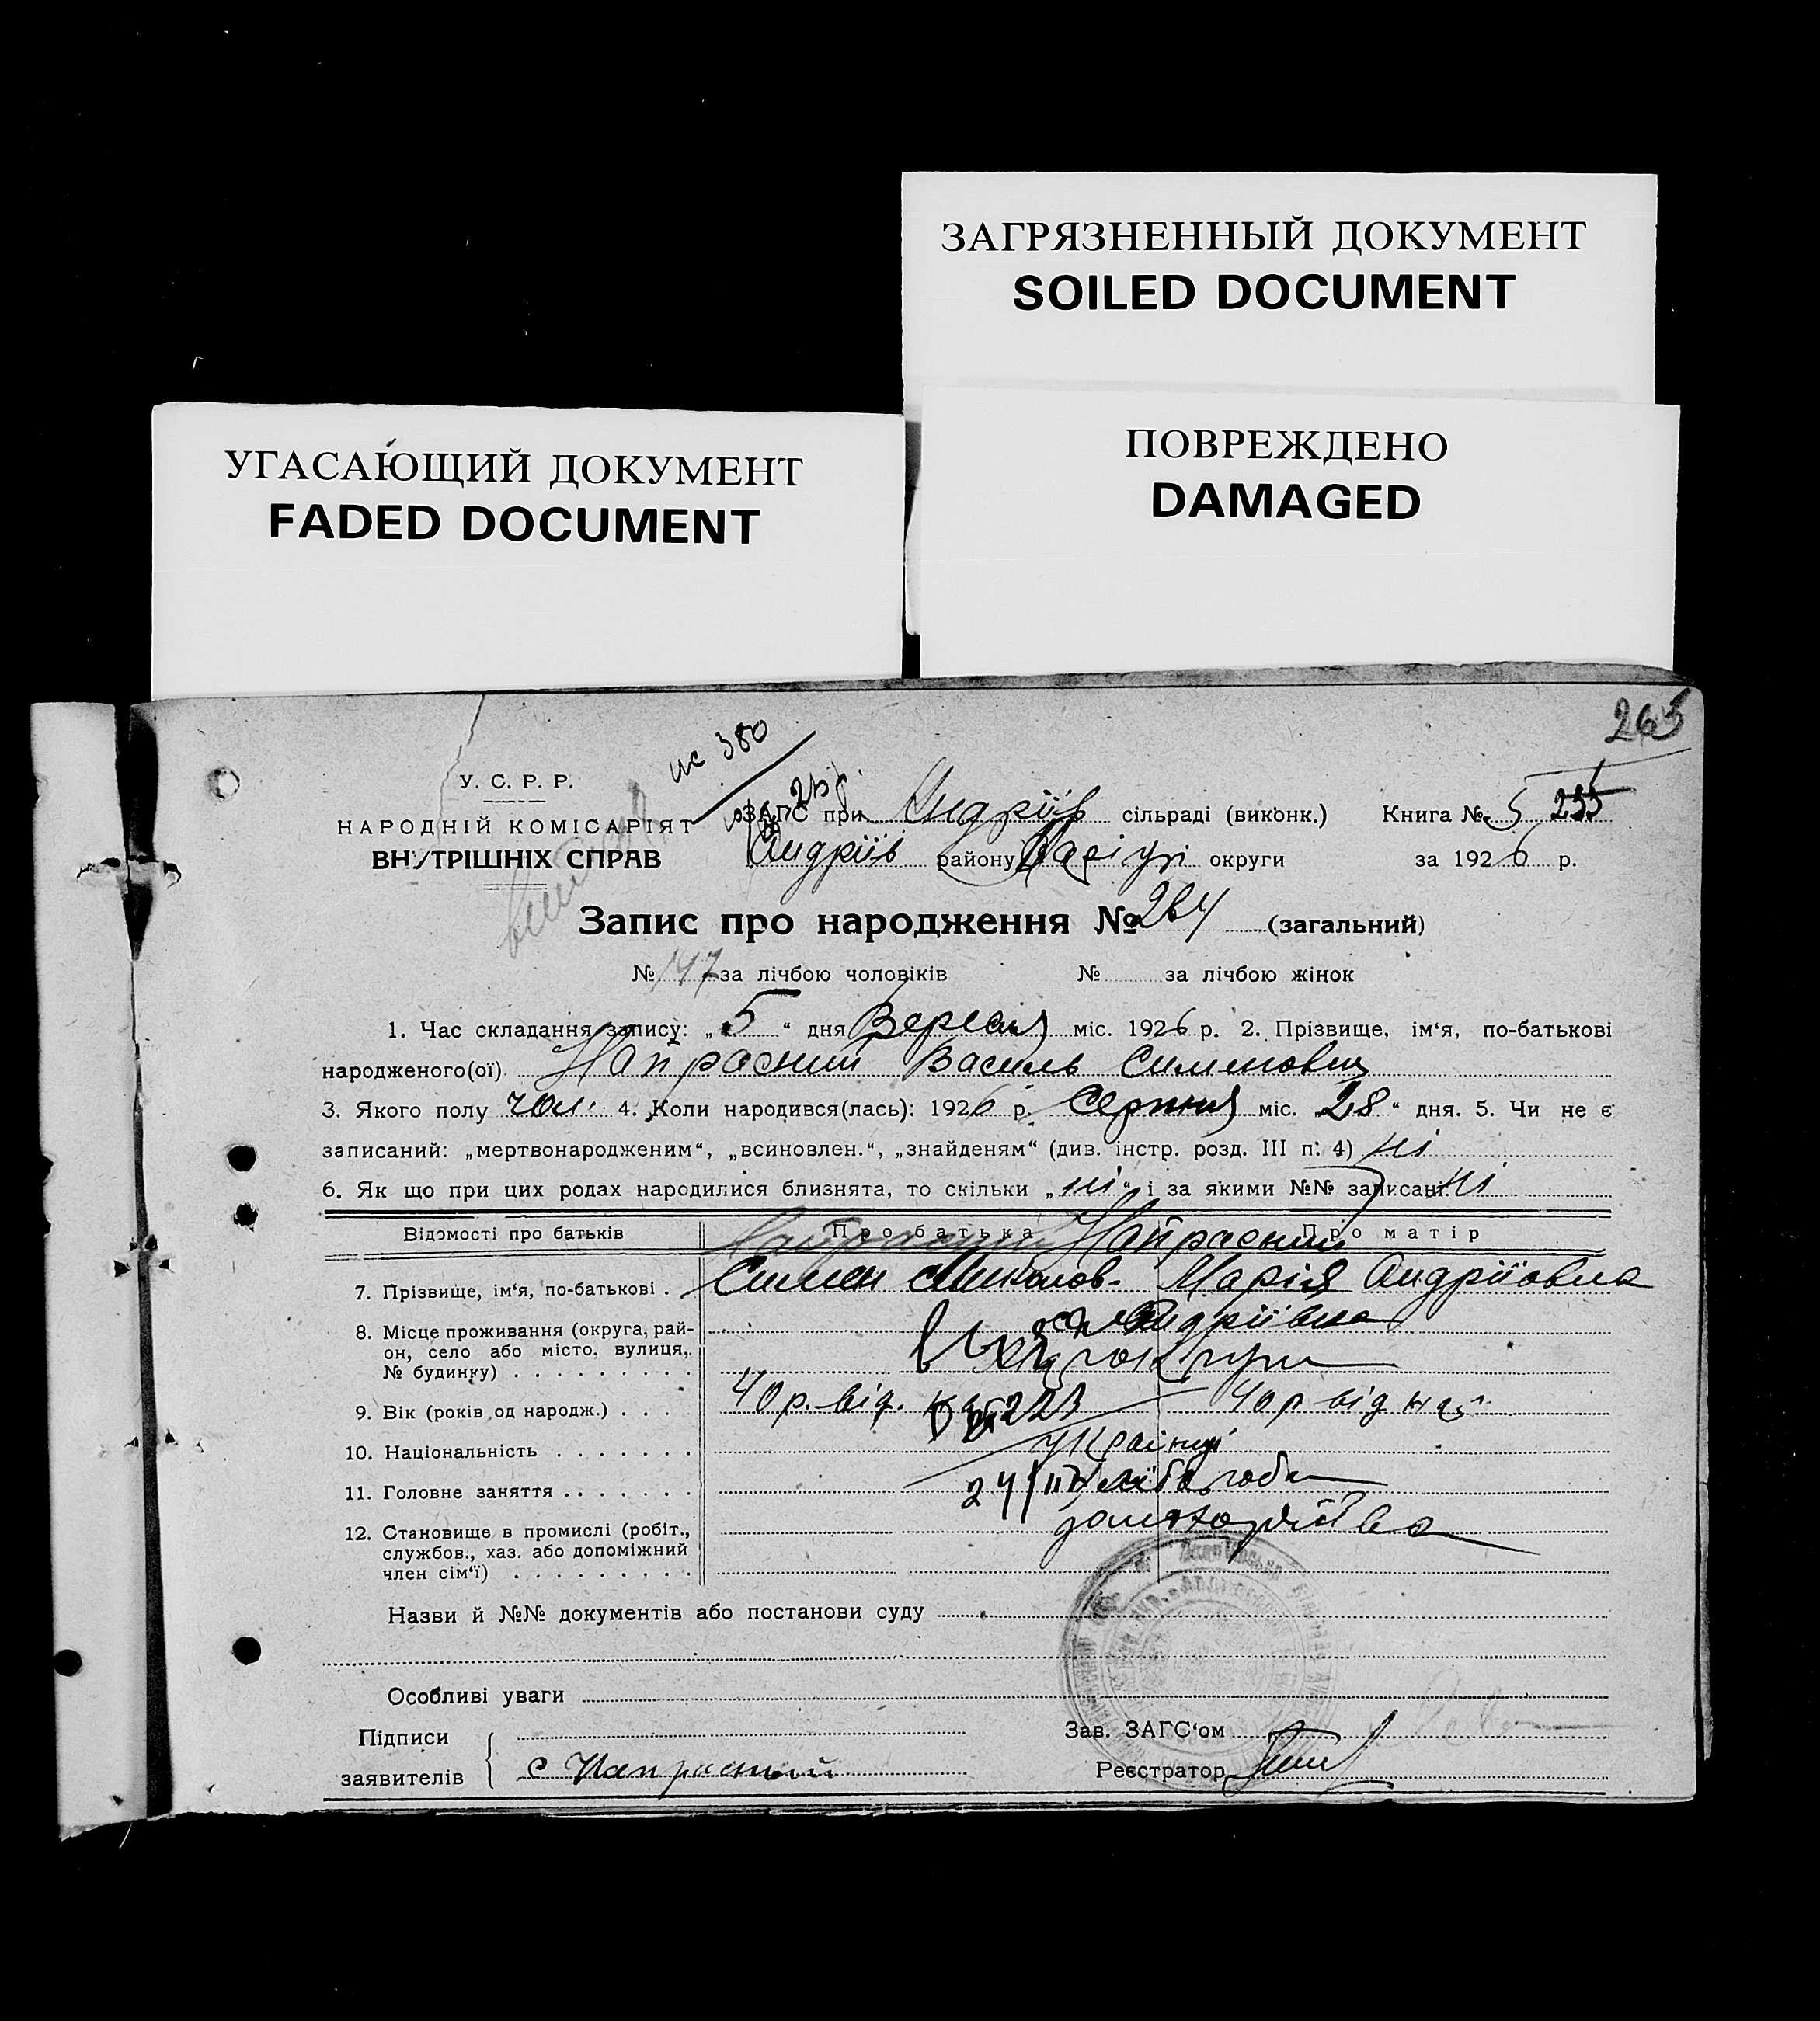 ЗАГРЯЗНЕННЫЙ ДОКУМЕНТ
SOILED DOCUMENT
УГАСАЮЩИЙ ДОКУМЕНТ
FADED DOCUMENT
ПОВРЕЖДЕНО
DAMAGED
265
ис 380
У. С. Р. Р.
НАРОДНІЙ КОМІСАРІЯТ
ВНУТРІШНІХ СПРАВ
ЗАГС при Андріїв сільраді (виконк.) Книга № 5 235
Андріїв району округи за 1926 р.
Запис про народження № 264 (загальний)
№ 147 за лічбою чоловіків № за лічбою жінок
1. Час складання запису: „5“ дня Вересня міс. 1926 р. 2. Прізвище, ім‘я, по-батькові
народженого(ої) Напрасний Василь Сименович
3. Якого полу чол. 4. Коли народився(лась): 1926 р. Серпня міс. „28“ дня. 5. Чи не є
записаний: „мертвонародженим“, „всиновлен.“, „знайденям“ (див. інстр. розд. III п. 4) ні
6. Як що при цих родах народилися близнята, то скільки „ні“ і за якими №№ записані ні
Відомості про батьків Про батька Про матір
Напрасний Напрасний
7. Прізвище, ім‘я, по-батькові . Симен Миколов. Марія Андріївна
8. Місце проживання (округа, рай-
он, село або місто, вулиця,
№ будинку) . . . . . . . . .
Андріївка
9. Вік (років од народж.) . . . 40 р. від. 40 р від
10. Національність . . . . . . . Українці
11. Головне заняття . . . . . . .
12. Становище в промислі (робіт.,
службов., хаз. або допоміжний
член сім‘ї) . . . . . . . . .
Назви й №№ документів або постанови суду
Особливі уваги
Підписи
заявителів
с Напрасный
Зав. ЗАГС‘ом
Реєстратор